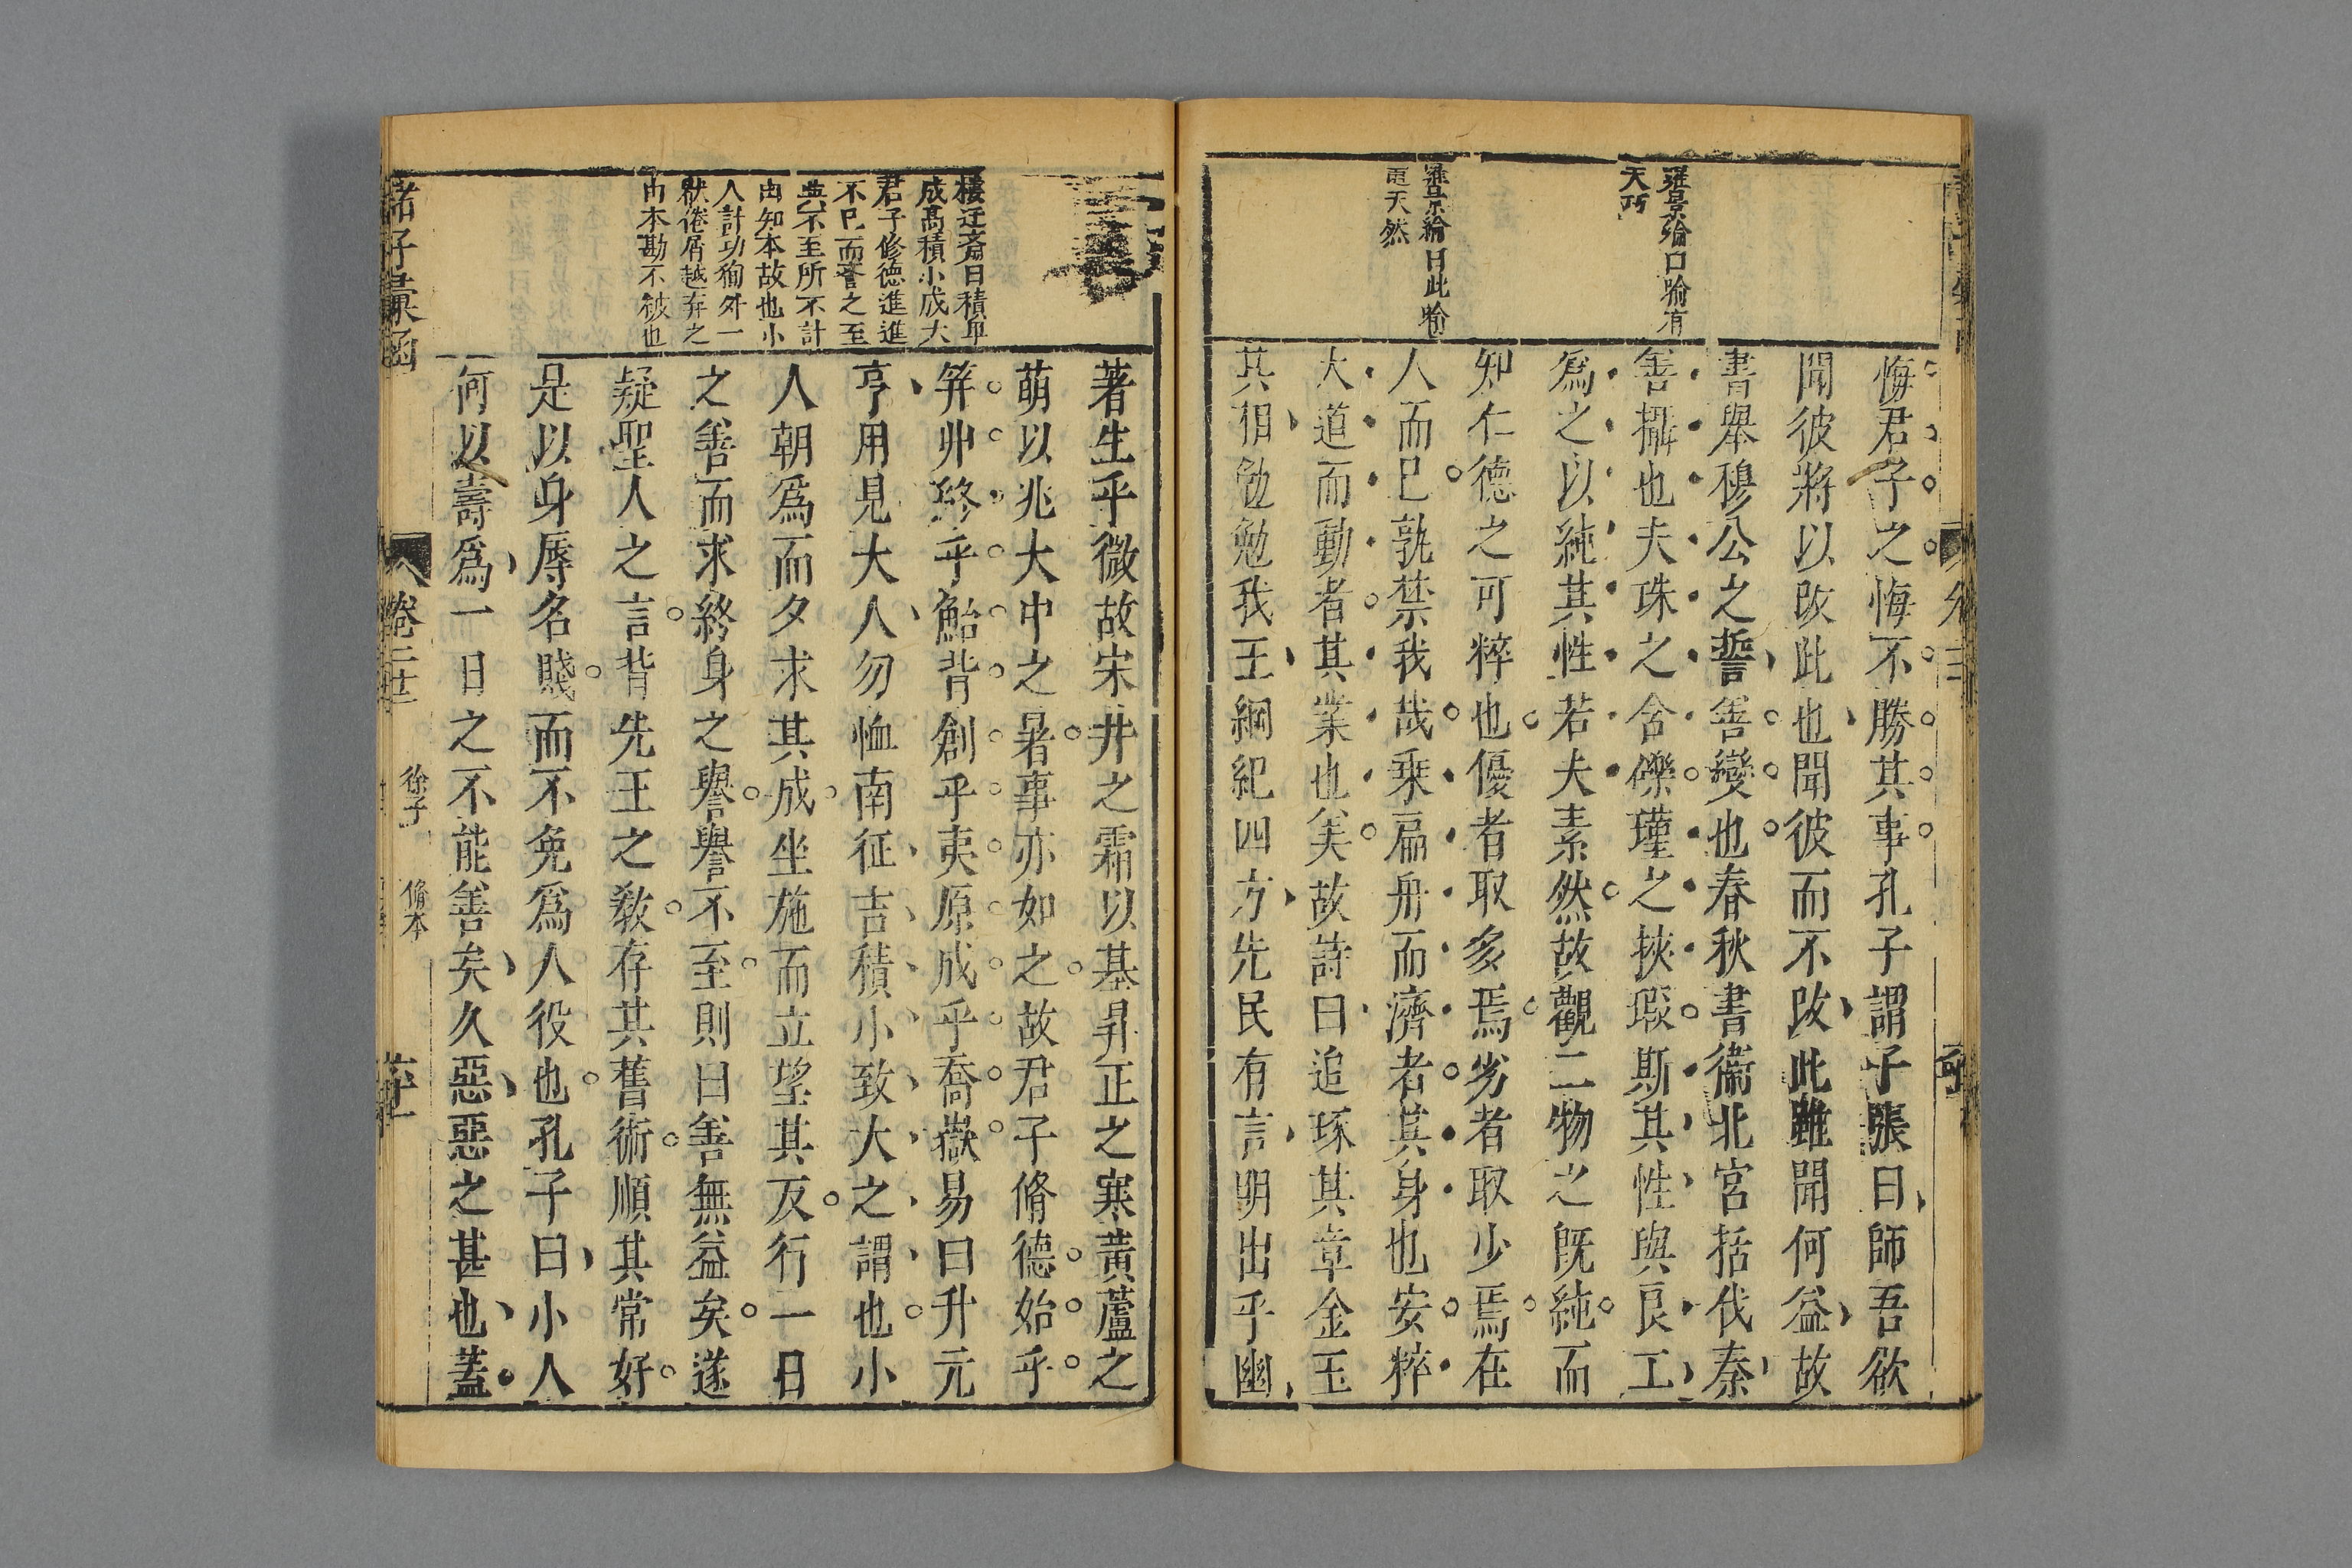 羅景綸曰喻有
天巧
羅景綸曰此喻
天然
悔君子之悔不勝其事孔子謂子張曰師吾欲
聞彼將以改此也聞彼而不改此雖聞何益故
書舉穆公之誓善變也春秋書衞北宮括伐秦
善攝也夫珠之含礫瑾之挾瑕斯其性與良工
爲之以純其性若夫素然故觀二物之旣純而
知仁德之可粹也優者取多焉劣者取少焉在
人而已孰禁我哉乘扁舟而濟者其身也安粹
大道而動者其業也美故詩曰追琢其章金玉
其相勉勉我王綱紀四方先民有言明出乎幽
樓迂齋曰積卑
成高積小成大
君子修德進進
不已而譽之至
無不至所不計
由知本故也小
人計功狥外一
厭倦屑越弃之
由本勘不彼也
著生乎微故宋井之霜以基昇正之寒黃蘆之
萌以兆大中之暑事亦如之故君子脩德始乎
笄丱終乎鮐背創乎夷原成乎喬嶽易曰升元
亨用見大人勿恤南征吉積小致大之謂也小
人朝爲而夕求其成坐施而立望其反行一日
之善而求終身之譽譽不至則曰善無益矣遂
疑聖人之言背先王之敎存其舊術順其常好
是以身辱名賤而不免爲人役也孔子曰小人
何以壽爲一日之不能善矣久惡惡之甚也蓋
諸子彙函
卷二十三
徐子
脩本